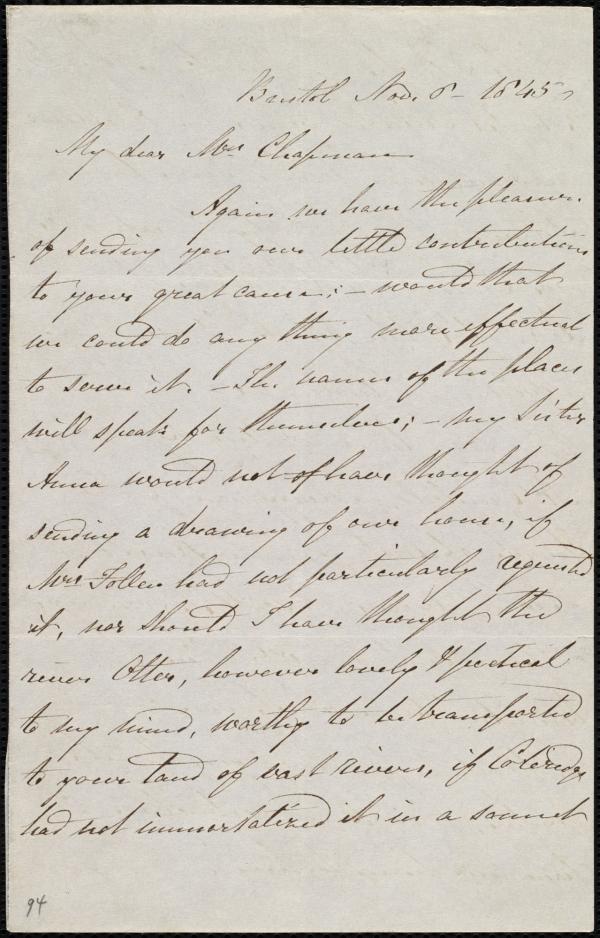 Bristol Nov. 8 - 1845
My dear Mrs Chapman
Again we have the pleasure
of sending you our little contributions
to your great cause; - would that
we could do any thing more effectual
to serve it. - The names of the places
will speak for themselves; - my Sister
Anna would not of have thought of
sending a drawing of our house, if
Mrs Follen had not particularly requested
it, nor should I have thought the
river Otter, however lovely & poetical
to my mind, worthy to be transported
to your land of vast rivers, if Coleridge
had not immortalized it in a sonnet
94